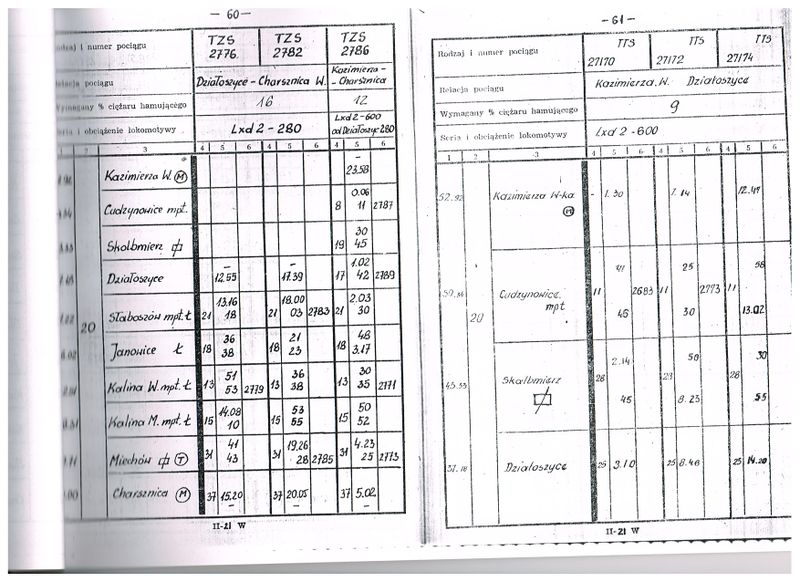 — 60 —
i numer pociągu TZS 2776 TZS 2782 TZS 2786
pociągu Działoszyce - Charsznica W. Kazimierza - - Charsznica
Wymagany % ciężaru hamującego 16 12
i obciążenie lokomotywy Lxd 2 - 280 Lxd 2 - 600 od Działoszyc 280
2 3 4 5 6 4 5 6 4 5 6
Kazimierza W. M – 23.58
Cudzynowice mpt. 8 0.06 11 2787
Skalbmierz 19 30 45
Działoszyce – 12.55 – 17.39 17 1.02 42 2789
20
Słaboszów mpt. Ł 21 13.16 18 21 18.00 03 2783 21 2.03 30
Janowice Ł 18 36 38 18 21 23 18 48 3.17
Kalina W. mpt. Ł 13 51 53 2779 13 36 38 13 30 35 2771
Kalina M. mpt. Ł 15 14.08 10 15 53 55 15 50 52
Miechów T 31 41 43 31 19.26 28 2785 31 4.23 25 2773
Charsznica M 37 15.20 – 37 20.05 – 37 5.02 –
II-21 W
— 61 —
Rodzaj i numer pociągu TTS 27170 TTS 27172 TTS 27174
Relacja pociągu Kazimierza. W. Działoszyce
Wymagany % ciężaru hamującego 9
Seria i obciążenie lokomotywy Lxd 2 - 600
1 2 3 4 5 6 4 5 6 4 5 6
52.92 Kazimierza W-ka M - 1.30 7.14
20
Cudzynowice mpt 11 41 46 2683 11 25 30 2773 11 58 13.02
Skalbmierz 28 2.14 45 50 8.23 28 30 55
Działoszyce 25 3.10 25 8.48 25 14.20
II-21 W